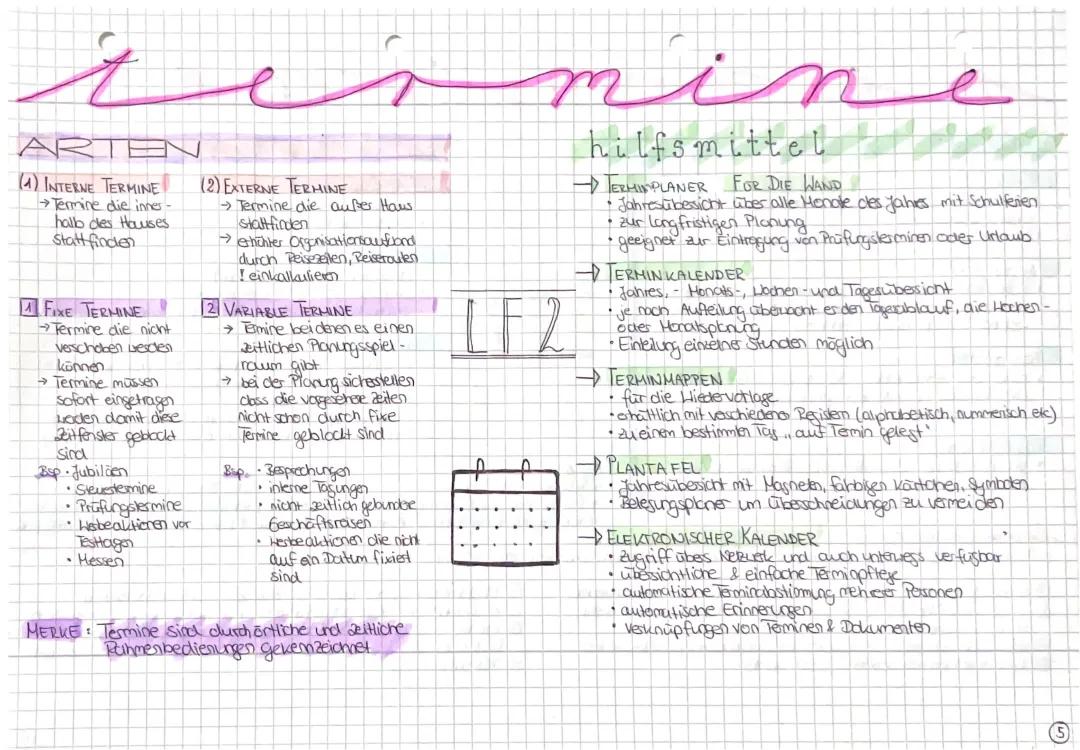 termine
ARTEN
(1) INTERNE TERMINE
→ Termine die inner-
halb des Hauses
stattfinden
(2) EXTERNE TERMINE
→ Termine die außer Haus
stattfinden
→ erhöhter Organisationsaufwand
durch Reisezeiten, Reiserouten
! einkalkulieren
1 FIXE TERMINE
→ Termine die nicht
verschoben werden
können
→ Termine müssen
sofort eingetragen
werden damit diese
Zeitfenster geblockt
sind
Bsp. · Jubiläen
· Steuertermine
· Prüfungstermine
· Werbeaktionen vor
Festtagen
· Messen
2 VARIABLE TERMINE
→ Termine bei denen es einen
zeitlichen Planungsspiel-
raum gibt
→ bei der Planung sicherstellen
dass die vorgesehene Zeiten
nicht schon durch fixe
Termine geblockt sind
Bsp. · Besprechungen
· interne Tagungen
· nicht zeitlich gebundne
Geschäftsreisen
· Werbeaktionen die nicht
auf ein Datum fixiert
sind
MERKE: Termine sind durch örtliche und zeitliche
Rahmenbedienungen gekennzeichnet
LF2
hilfsmittel
→ TERMINPLANER FÜR DIE WAND
· Jahresübersicht über alle Monate des Jahres mit Schulferien
· zur langfristigen Planung
· geeignet zur Eintragung von Prüfungsterminen oder Urlaub
→ TERMINKALENDER
· Jahres, - Monats-, Wochen- und Tagesübersicht
· je nach Aufteilung überwacht er den Tagesablauf, die Wochen-
oder Monatsplanung
· Einteilung einzelner Stunden möglich
→ TERMINMAPPEN
· für die Wiedervorlage
· erhältlich mit verschiedene Registern (alphabetisch, nummerisch etc)
· zu einem bestimmten Tag „auf Termin gelegt"
→ PLANTAFEL
· Jahresübersicht mit Magneten, farbigen Kärtchen, Symbolen
· Belegungsplaner um Überschneidungen zu vermeiden
→ ELEKTRONISCHER KALENDER
· Zugriff übers Netzwerk und auch unterwegs verfügbar
· übersichtliche & einfache Terminpflege
· automatische Terminabstimmung mehrerer Personen
· automatische Erinnerungen
· Verknüpfungen von Terminen & Dokumenten
5